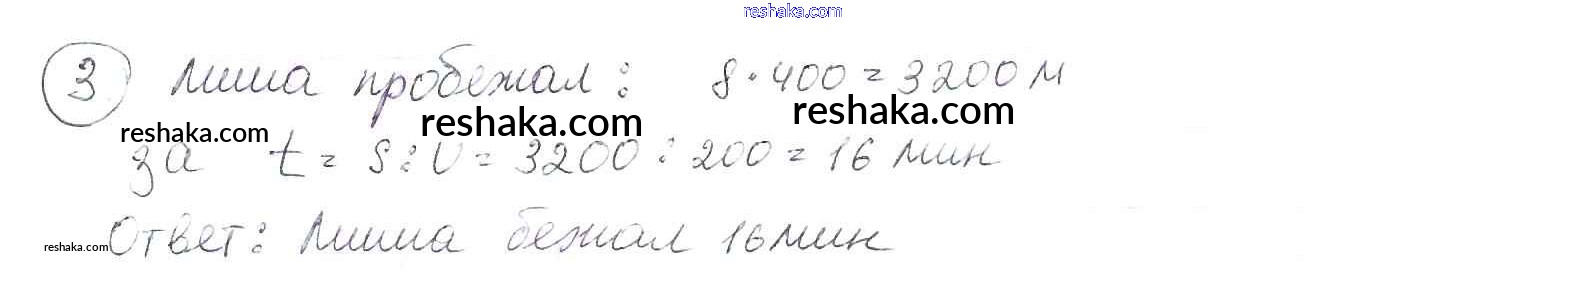 reshaka.com
3 Миша пробежал: 8·400=3200 м
reshaka.com reshaka.com reshaka.com
за t = S:V = 3200:200=16 мин
reshaka.com Ответ: Миша бежал 16 мин